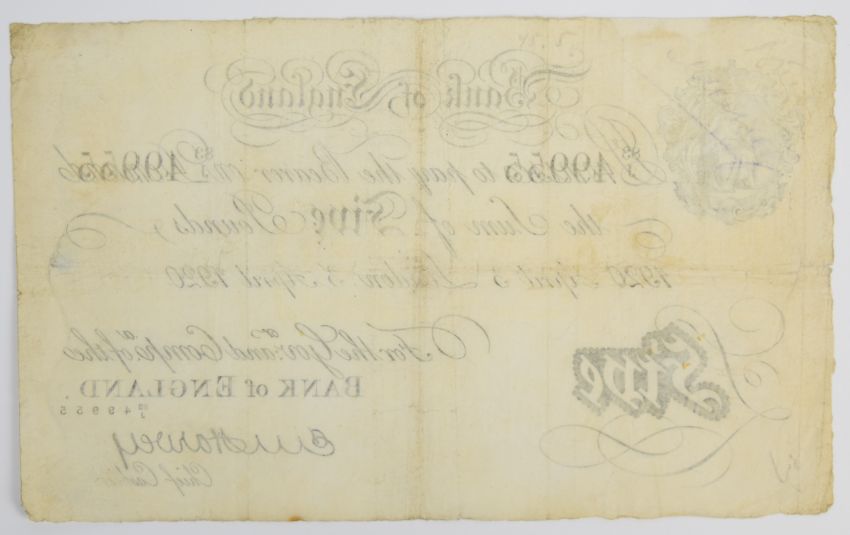 Bank of England
83/J 49955 to pay the Bearer on Demand 83/J 49955
the Sum of Five Pounds
1920 April 3 London 3 April 1920
For the Gov.r and Comp.a of the
BANK of ENGLAND.
83/J 49955
E M Harvey
Chief Cashier
Five